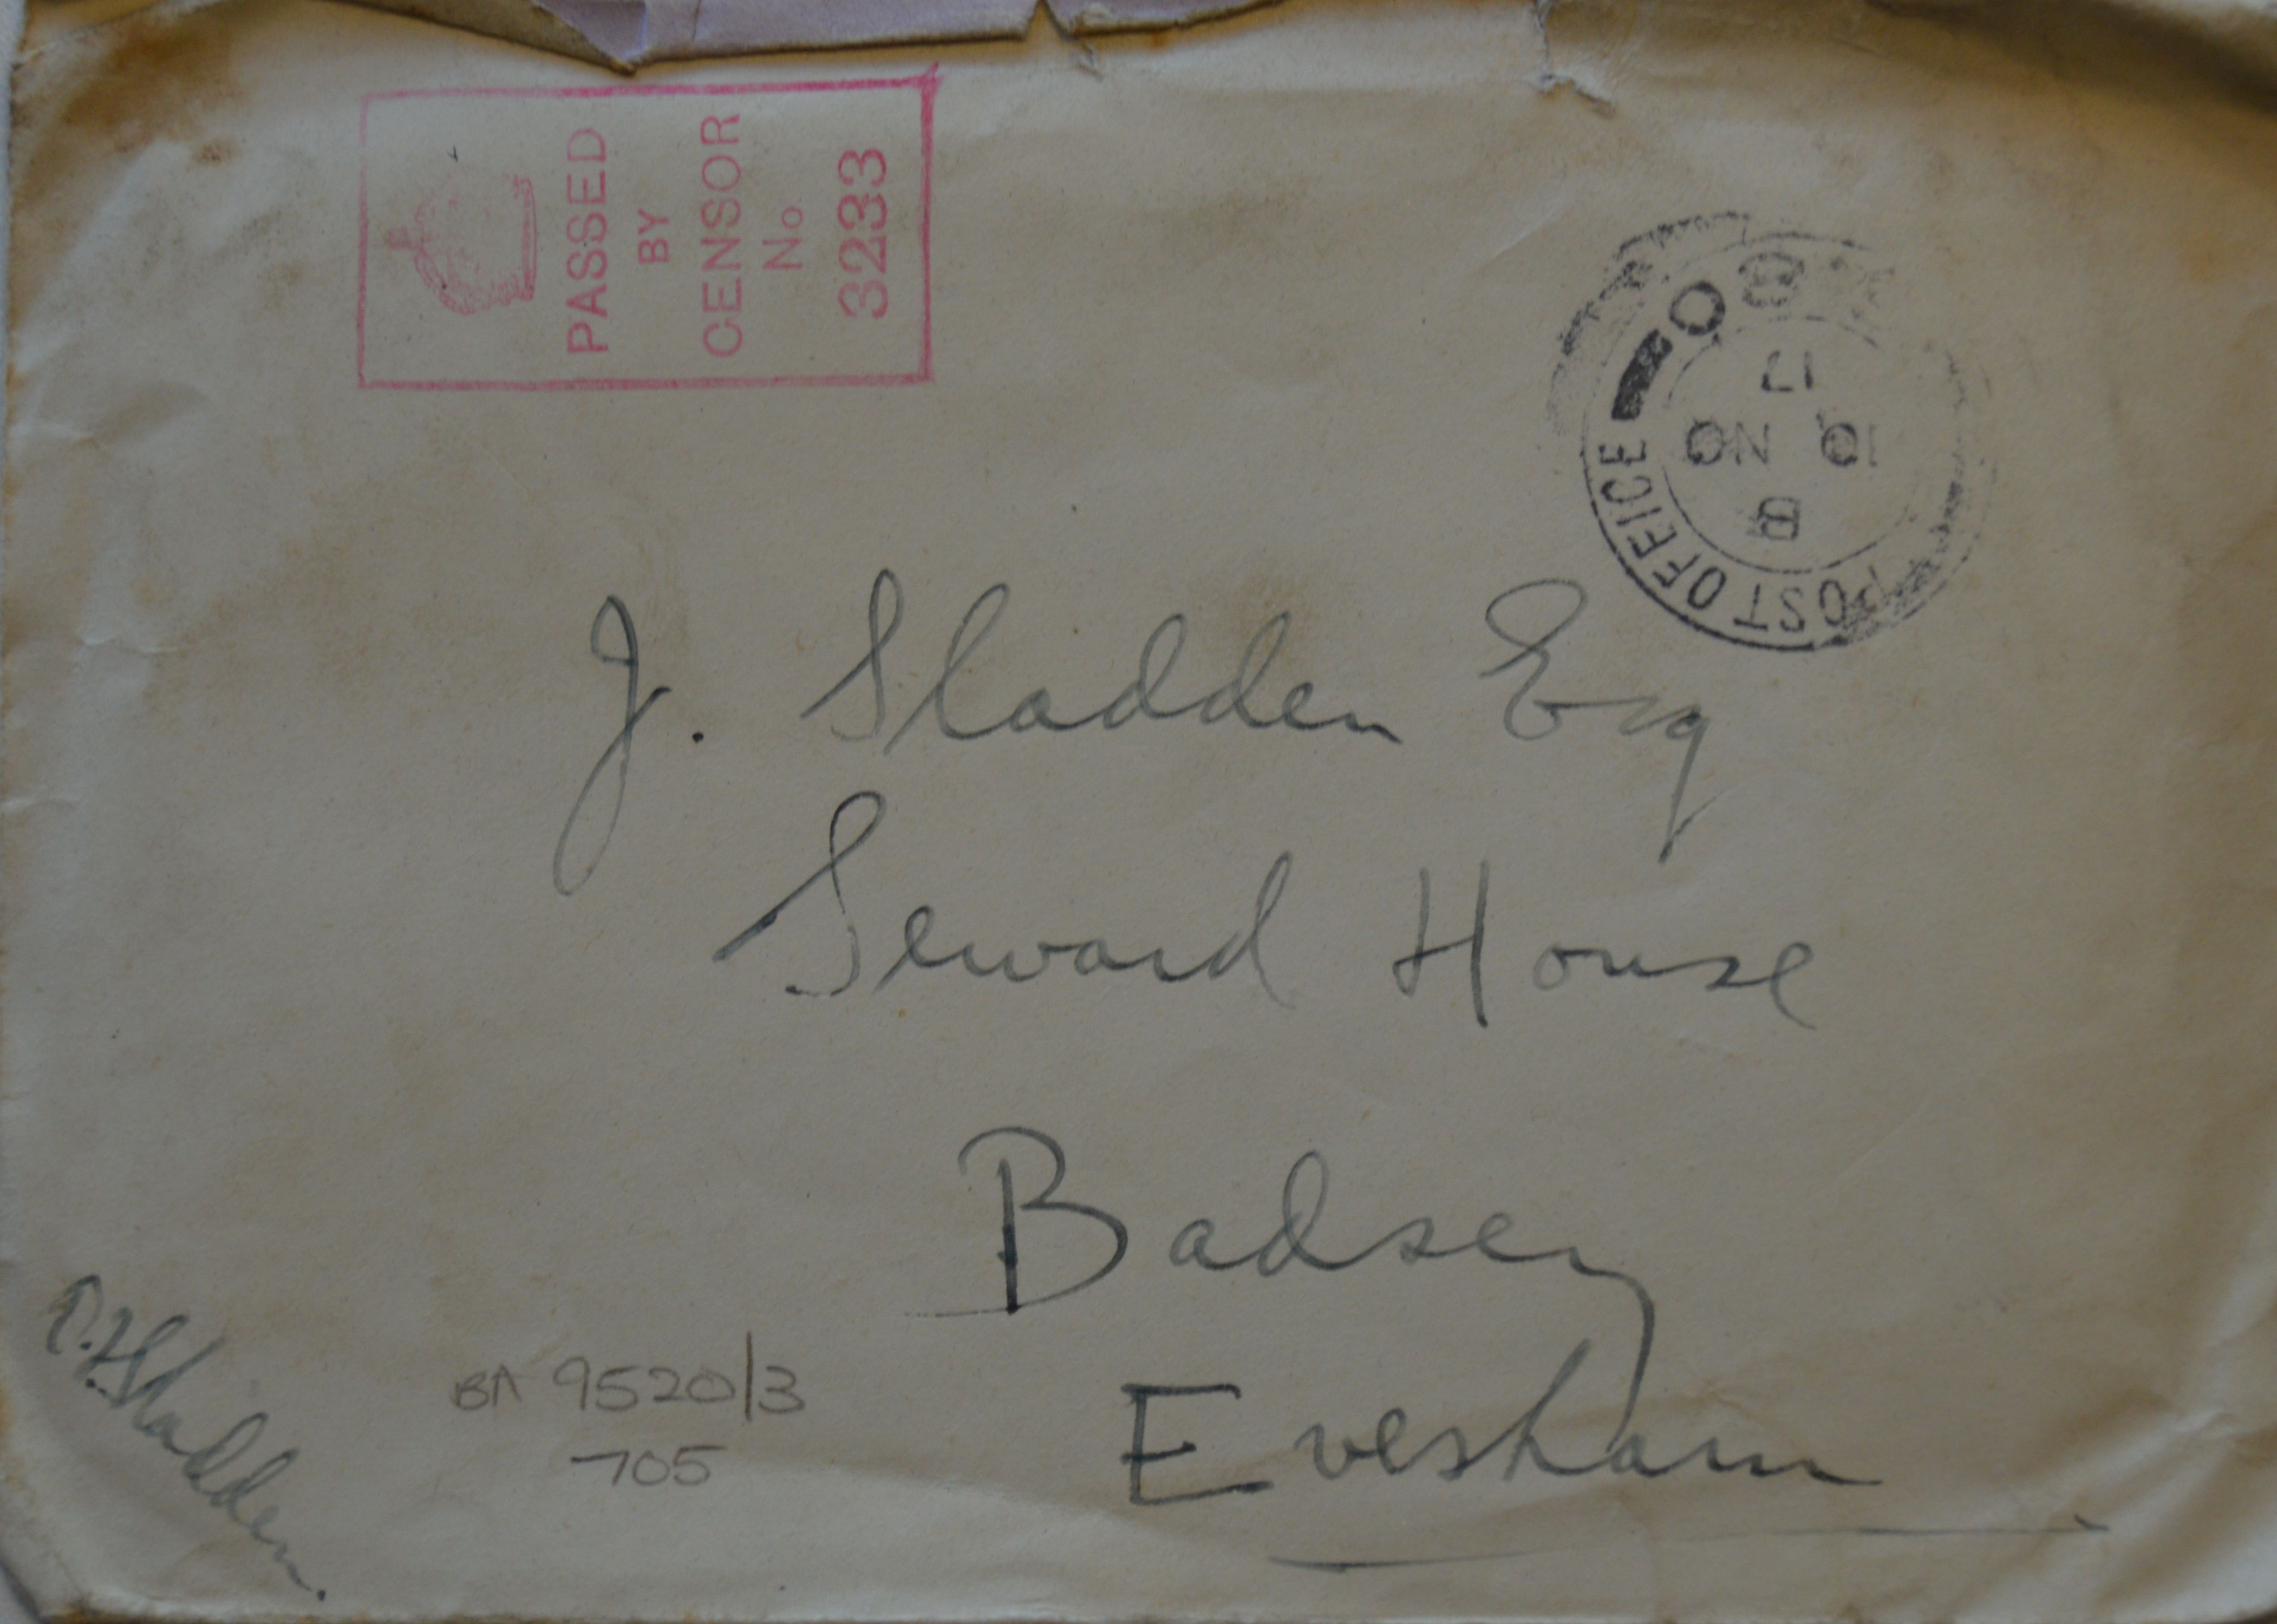 PASSED
BY
CENSOR
No
3233
POST OFFICE
B
10 NO
17
J. Sladden Esq
Seward House
Badsey
Evesham
Sladden.
BA 9520/3
705